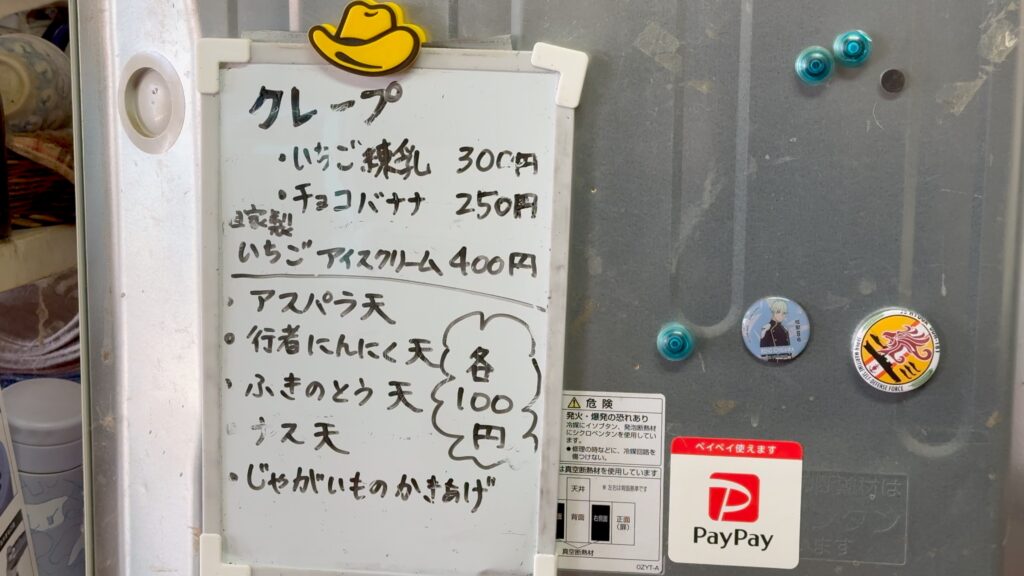 クレープ
・いちご練乳 300円
・チョコバナナ 250円
自家製
いちご アイスクリーム 400円
・アスパラ天
・行者にんにく天
・ふきのとう天
ナス天
・じゃがいものかきあげ
各
100
円
危険
発火・爆発の恐れあり
冷媒にイソブタン、発泡断熱材
にシクロペンタンを使用してい
ます。
●修理の時などに、冷媒回路を
傷つけない。
は真空断熱材を使用しています
天井
※ 左右は背面基準です
背面
右側面
正面
(扉)
真空断熱材
OZYT-A
ペイペイ使えます
PayPay
SELF-DEFENSE FORCE